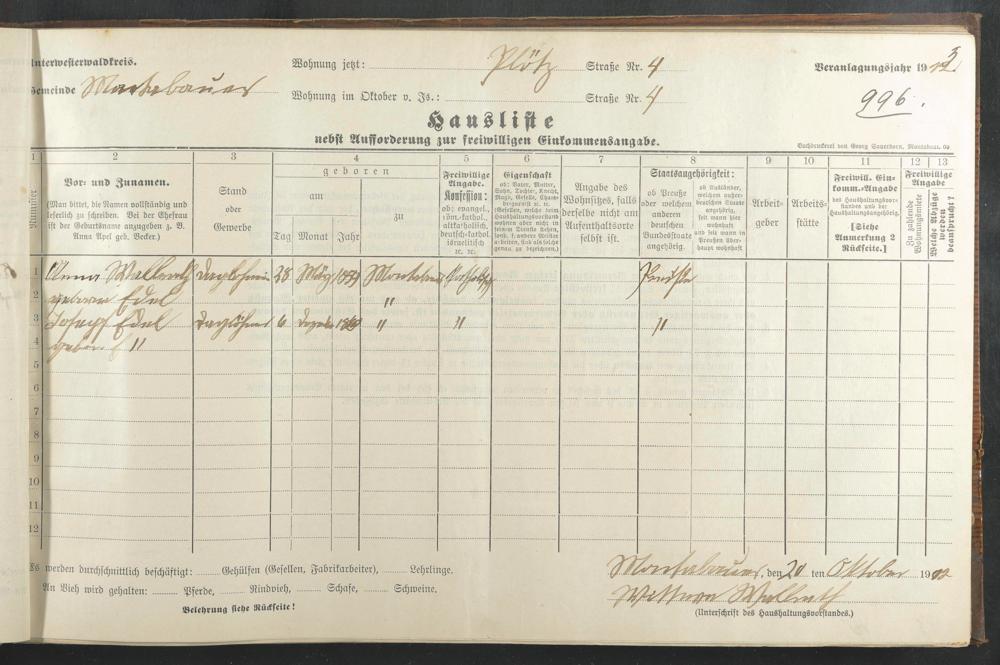 Unterwesterwaldkreis. Wohnung jetzt: Plötz Straße Nr. 4 Veranlagungsjahr 19
Gemeinde Montabaur Wohnung im Oktober v. Js.: Straße Nr. 4 996.
Hausliste
nebst Aufforderung zur freiwilligen Einkommensangabe.
Buchdruckerei von Georg Sauerborn, Montabaur.
1 2 3 4 5 6 7 8 9 10 11 12 13
Nummer
Vor- und Zunamen.
(Man bittet, die Namen vollständig und
leserlich zu schreiben. Bei der Ehefrau
ist der Geburtsname anzugeben z. B.
Anna Apel geb. Becker.)
Stand
oder
Gewerbe
geboren
am zu
Tag Monat Jahr
Freiwillige
Angabe.
Konfession:
ob: evangel.,
röm.-kathol.,
altkathol., 
deutsch-kathol.
israelitisch
ꝛc. ꝛc.
Eigenschaft
ob: Vater, Mutter,
Sohn, Tochter, Knecht,
Magd, Geselle,
Angabe des
Wohnsitzes, falls
derselbe nicht am
Aufenthaltsorte
selbst ist.
Staatsangehörigkeit:
ob Preuße
oder welchem
anderen
deutschen
Bundesstaate
angehörig.
ob Ausländer,
welchem außer-
deutschen Staate
angehörig,
seit wann hier
wohnhaft
und seit wann in
Preußen über-
haupt wohnhaft
Arbeit-
geber
Arbeits-
stätte
Freiwill. Ein-
komm.-Angabe
des Haushaltungsvor-
standes und der
Haushaltungsangehörig.
[Siehe
Anmerkung 2
Rückseite.]
Freiwillige
Angabe
Zu zahlende
Wohnungsmiete
Welche Abzüge
werden
beansprucht?
1 Anna Wallrath Taglöhnerin 28 März Montabaur Katholisch Preußin
2 geborene Edel "
3 Josepf Edel Taglöhner 6 " " "
4 "
5
6
7
8
9
10
11
12
Es werden durchschnittlich beschäftigt: Gehülfen (Gesellen, Fabrikarbeiter), Lehrlinge.
An Vieh wird gehalten: Pferde, Rindvieh, Schafe, Schweine.
Belehrung siehe Rückseite!
Montabaur, den 20 ten Oktober 1902
Wittwe Wallrath
(Unterschrift des Haushaltungsvorstandes.)